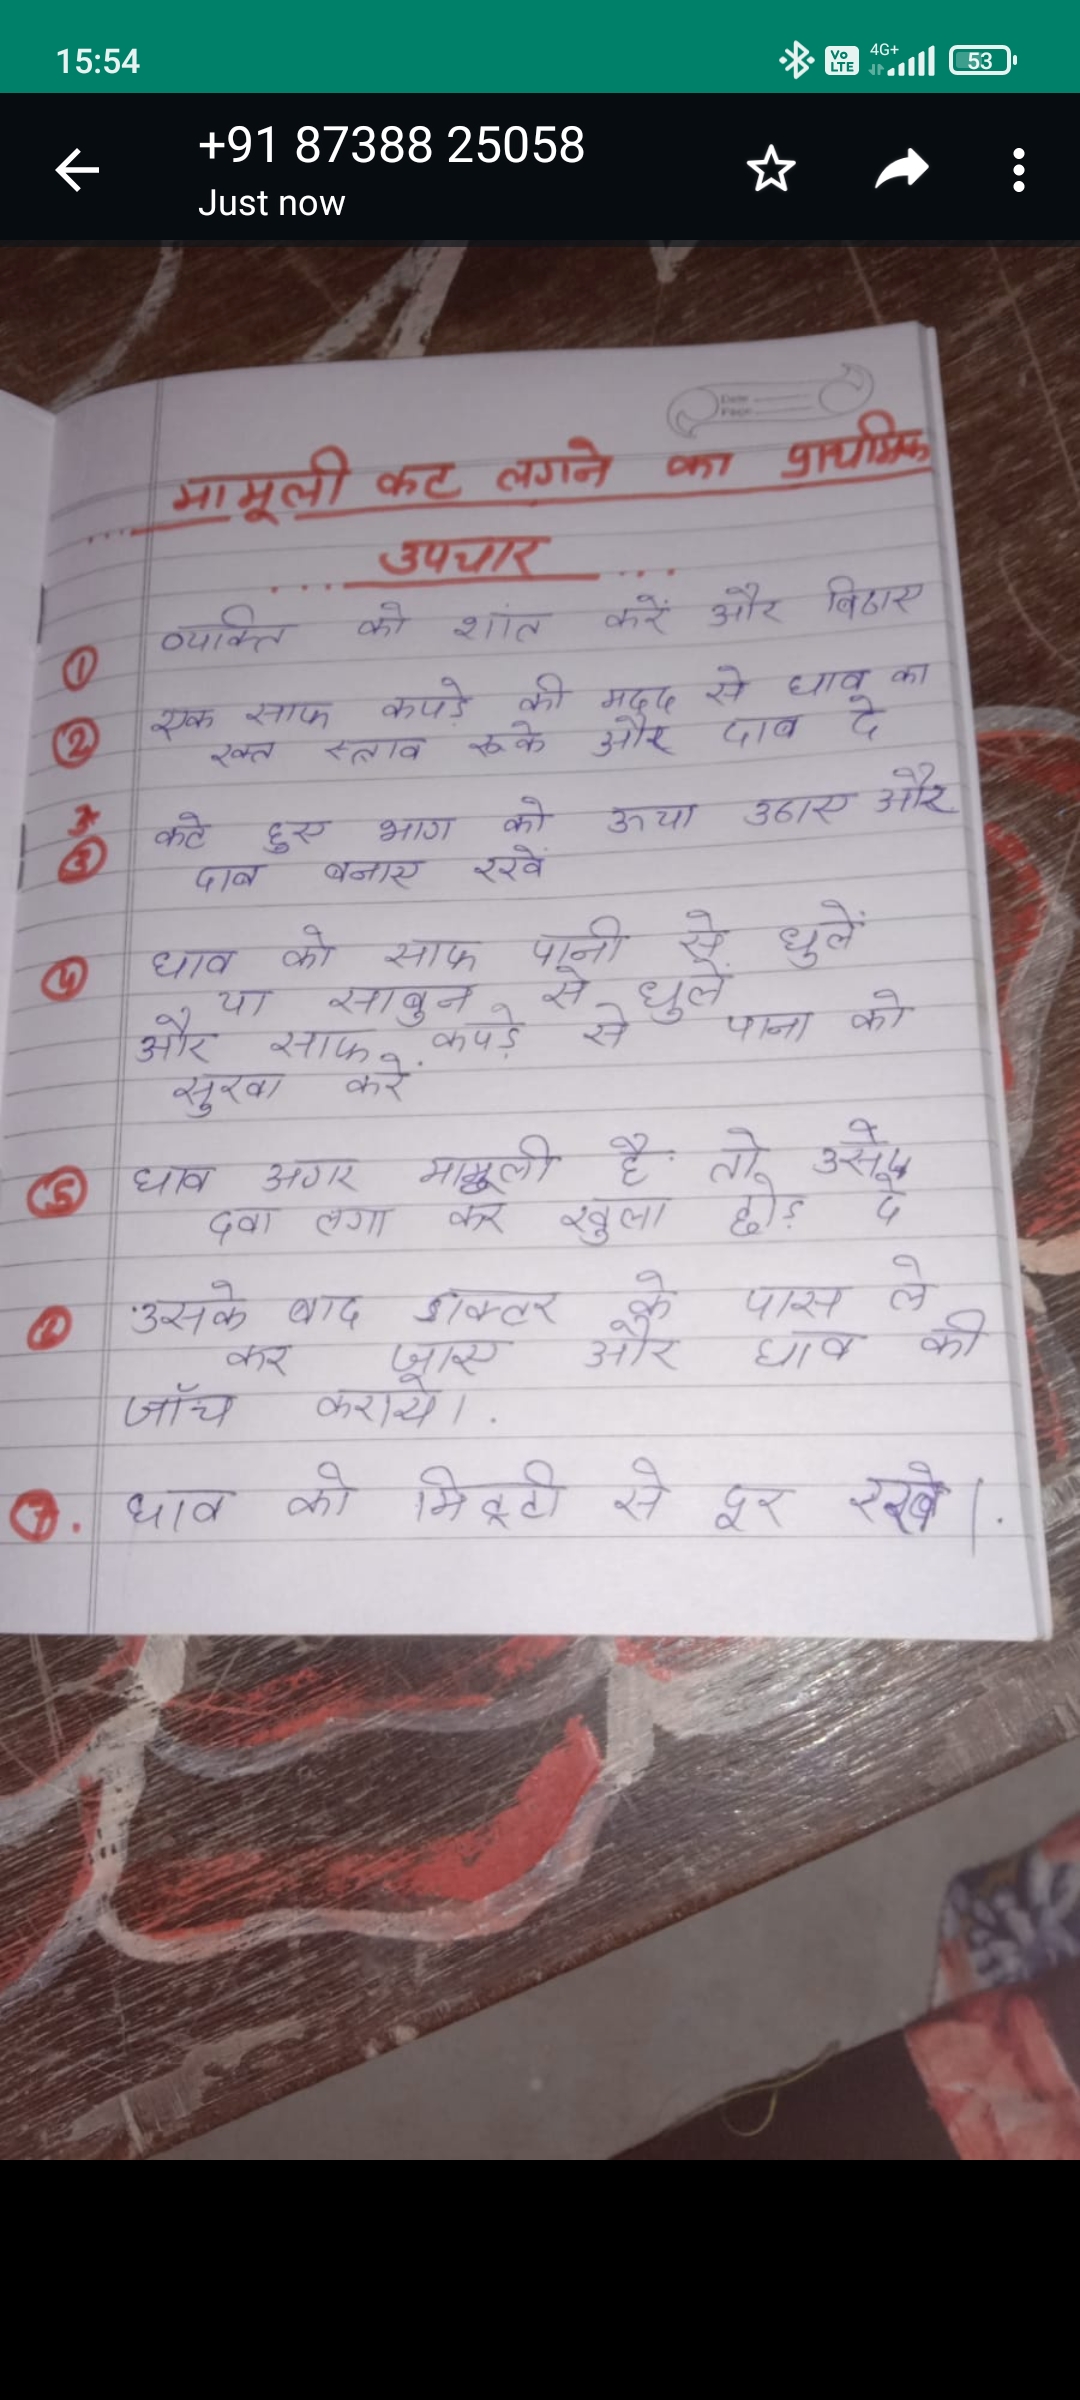 15:54
Vo LTE 4G+ 53
+91 87388 25058
Just now
Date
Page
मामूली कट लगने का प्राथमिक
उपचार
① व्यक्ति को शांत करें और बिठाए
② एक साफ कपड़े की मदद से घाव का
रक्त स्त्राव रूके और दाब दे
③ कटे हुए भाग को ऊचा उठाए और
दाब बनाए रखें
④ धाव को साफ पानी से धुलें
या साबुन से धुले
और साफ कपड़े से पाना को
सुखा करें
⑤ धाव अगर मामूली है तो उसे
दवा लगा कर खुला छोड़ दे
उसके बाद डाक्टर के पास ले
कर जाए और धाव की
जाँच कराये।
⑦. धाव को मिट्टी से दूर रखे।